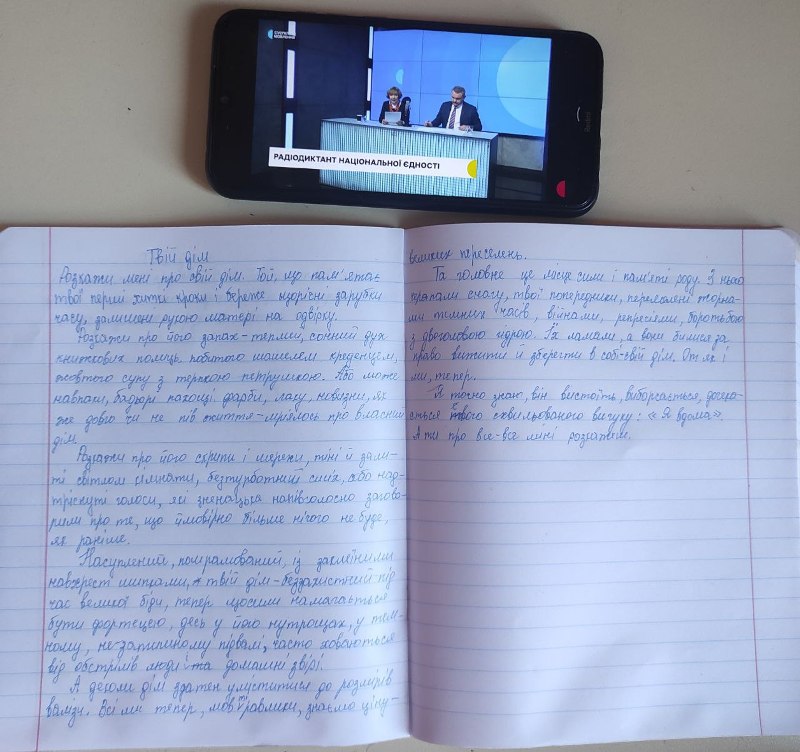 СУСПІЛЬНЕ
МОВЛЕННЯ
РАДІОДИКТАНТ НАЦІОНАЛЬНОЇ ЄДНОСТІ
Redmi
Твій дім
Розкажи мені про свій дім. Той, що пам'ятає
твої перші хиткі кроки і береже щорічні зарубки
часу, залишені рукою матері на одвірку.
Розкажи про його запах-теплий, сонний дух
книжкових полиць, побитого шашелем креденцем,
жовтого супу з терпкою петрушкою. Або може
навпаки, бадьорі пахощі фарби, лаку, новизни, як
же довго чи не пів життя-мріялось про власний
дім.
Розкажи про його скрипи і мережи, тіні й залиті
світлом кімнати, безтурботний сміх, або над-
тріснуті голоси, які зненацька напівголосно загово-
рили про те, що ймовірно більше нічого не буде,
як раніше.
Насуплений, пошрамований, із заклеєними
навхрест шибками, твій дім-беззахистний під
час великої біди, тепер щосили намагається
бути фортецею, десь у його нутрощах, у тем-
ному, не затишному підвалі, часто ховаються
від обстрілів люди та домашні звірі.
А деколи дім здатен уміститися до розмірів
валізи. Всі ми тепер, мов равлики, знаємо ціну
великих переселень.
Та головне це місце сили і пам'яті роду. З нього
черпали снагу, твої попередники, перемелені жорна-
ми темних часів, війнами, репресіями, боротьбою
з двоголовою гідрою. Їх ламали, а вони билися за
право вижити й зберегти в собі-свій дім. От як і
ми, тепер.
Я точно знаю, він вистоїть, виборсається, дочека-
ється твого схвильованого вигуку: «Я вдома».
А ти про все-все мені розкажеш.